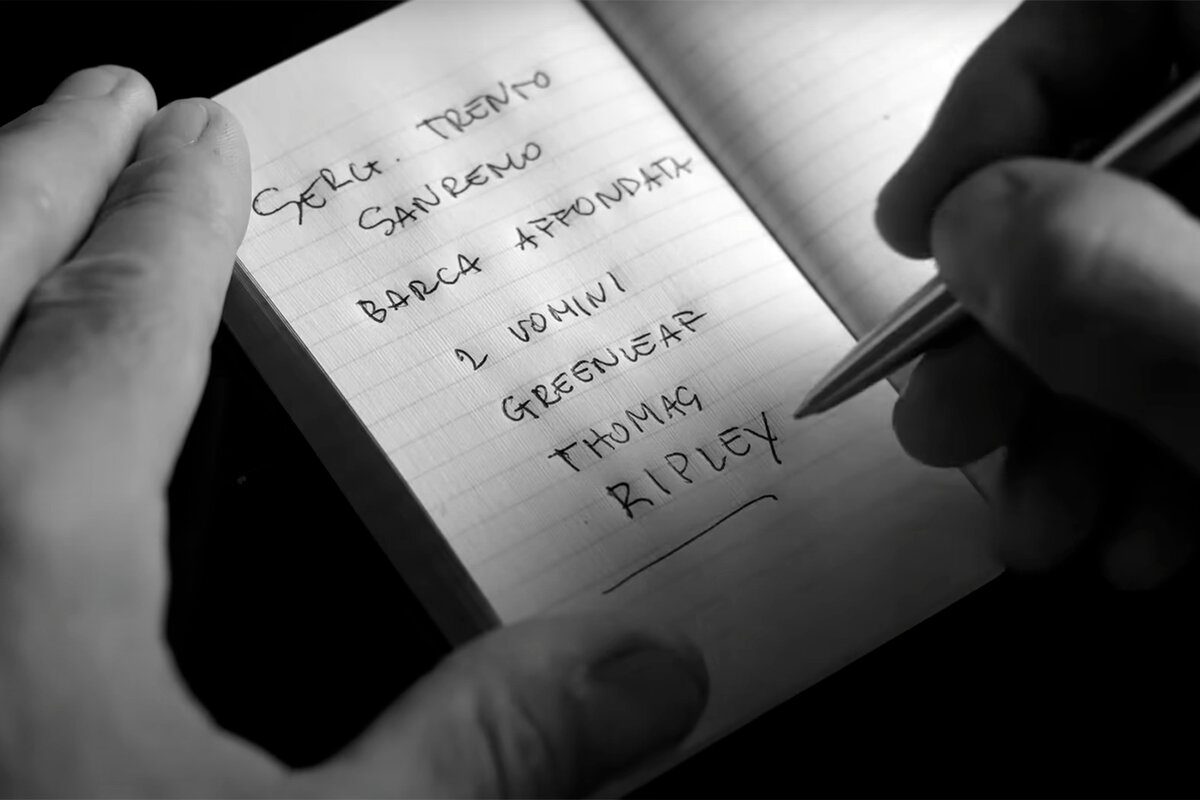 SERG. TRENTO
SANREMO
BARCA AFFONDATA
2 UOMINI
GREENLEAF
THOMAS
RIPLEY